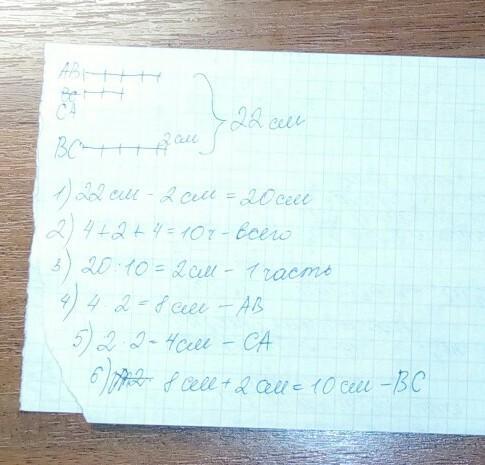 AB
CA
BC 2см
22 см
1) 22 см - 2 см = 20 см
2) 4+2+4=10ч - всего
3) 20:10=2см - 1 часть
4) 4·2=8см - AB
5) 2·2=4см - CA
6) 8 см + 2 см = 10 см - BC